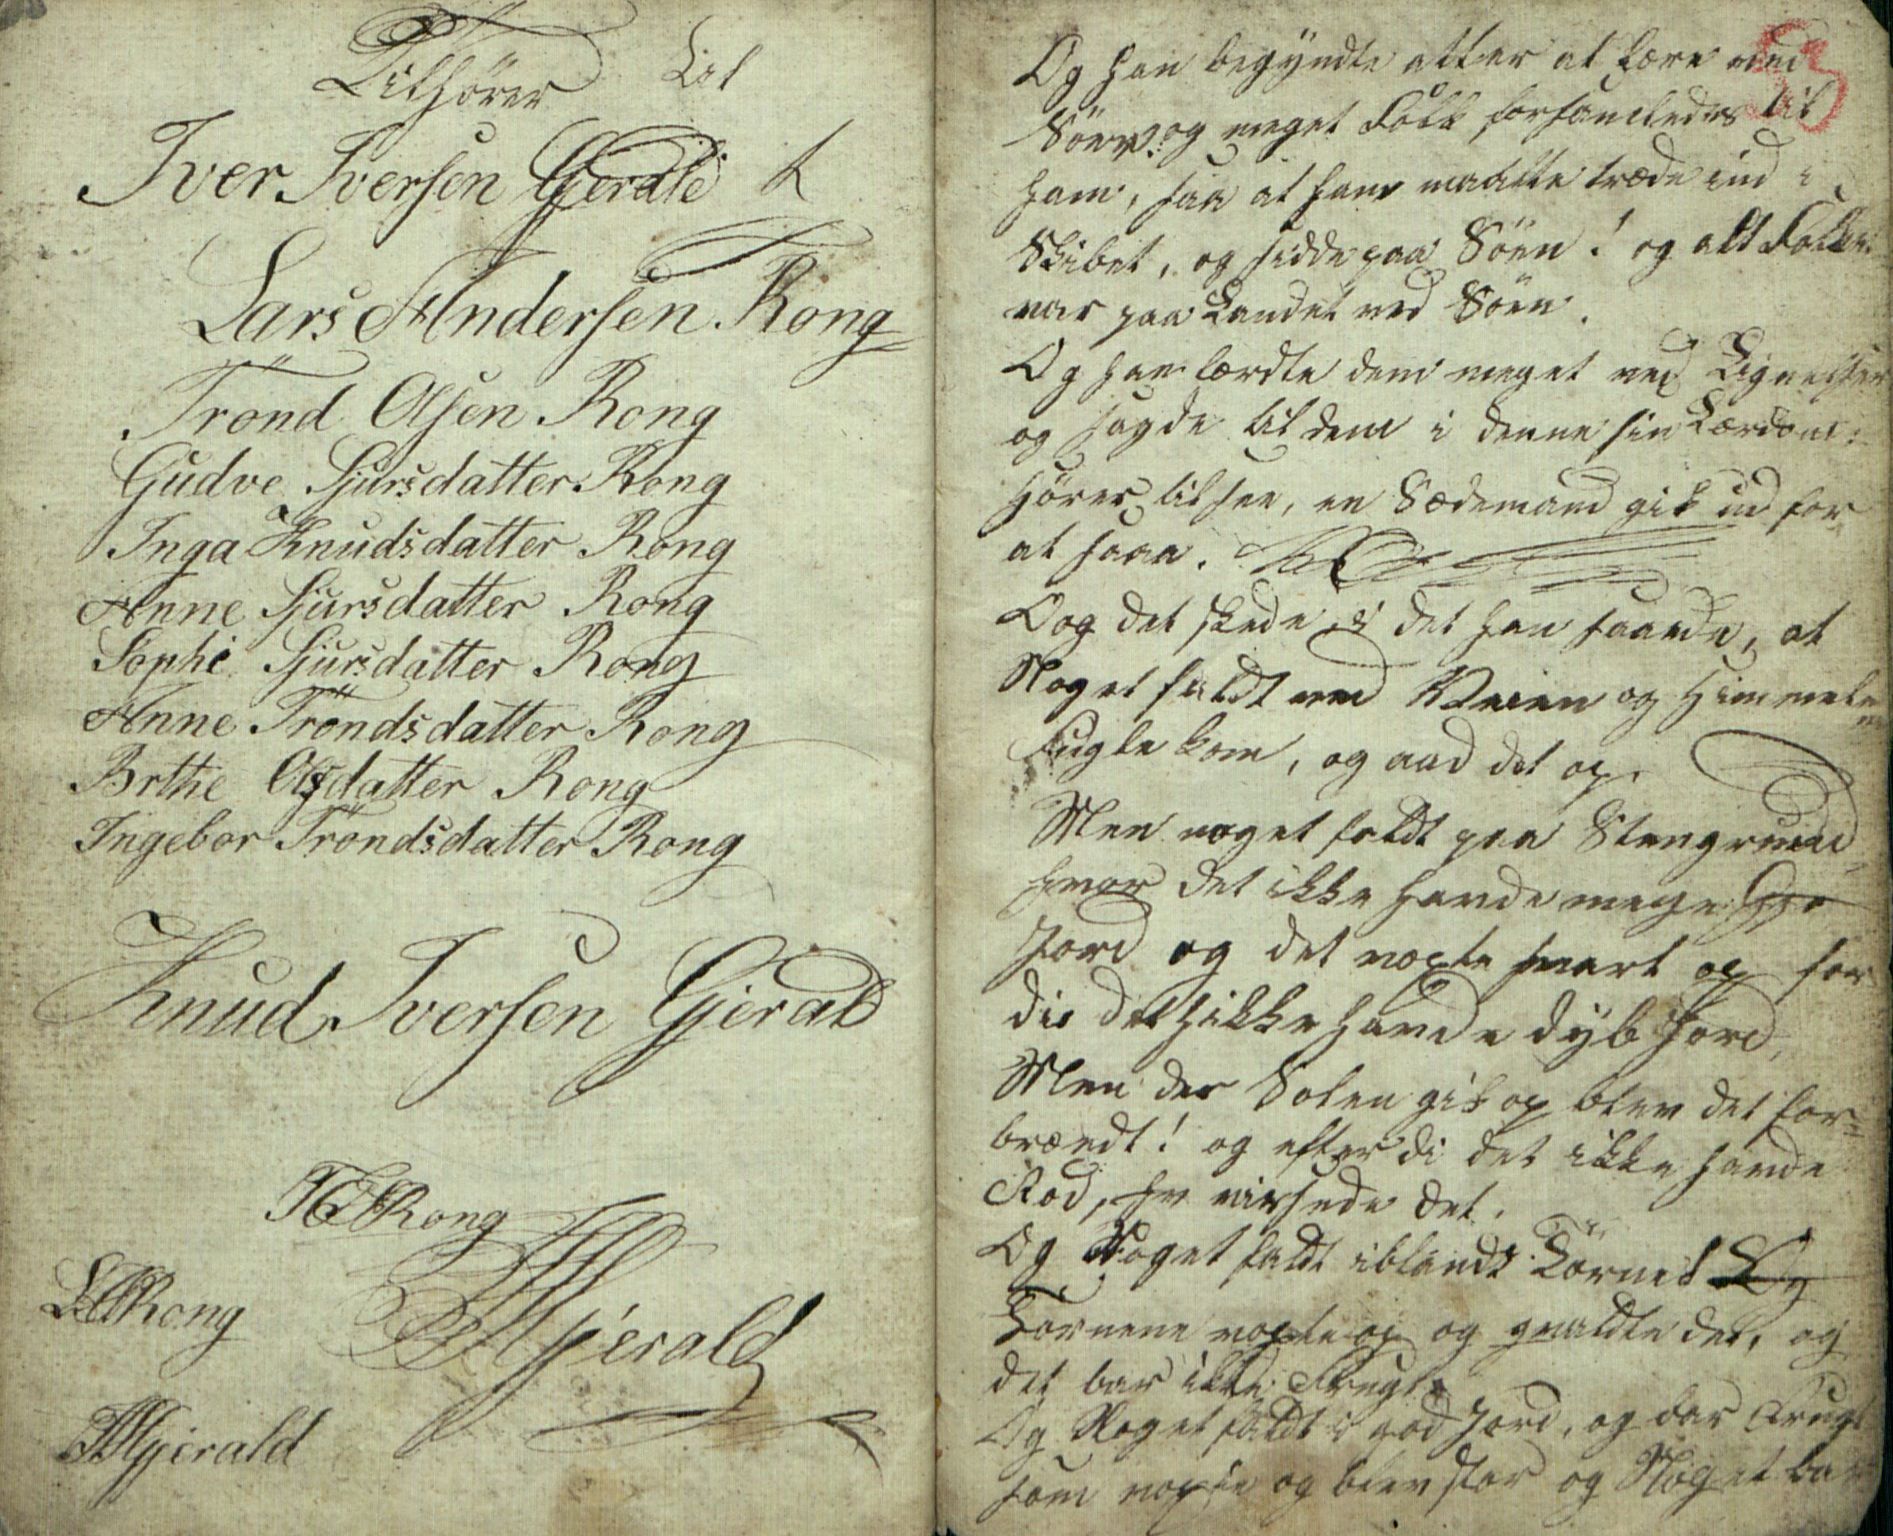 Tilhörer Lit
Iver Iversen Gjerald
Lars Andersen Rong
Trönd Olsen Rong
Gudve Sjursdatter Rong
Inga Knudsdatter Rong
Anne Sjursdatter Rong
Sophi Sjursdatter Rong
Anne Tröndsdatter Rong
Brthe Olsdatter Rong
Ingebor Tröndsdatter Rong
Knud Iversen Gjerald
Rong
LARong
Gjerald
Gjerald
Og han begyndte atter at lære ved
Söen. og meget Folk forsamledes til
ham, saa at han maatte træde ind i
Skibet, og sidde paa Söen! og alt Folket
var paa Landet ved Söen.
Og han lærdte dem meget ved Lignelser
og sagde til dem i denne sin Lærdom:
Hörer til see, en Sædemand gik ud for
at saae.
Oog det skede, i det han saaede, at
Noget faldt ved Veien og Himmelens
Fugle kom, og aad det op.
Men noget faldt paa Stengrund
hvor det ikke havde mege
Jord og det voxte snart op for
di det ikke havde dyb Jord,
Men der Solen gik op blev det for=
brændt! og efterdi det ikke havde
Rod, visnede det.
Og Noget faldt iblandt Törnes Og
Tornene voxte op og qvaldte det, og
det bar ikke Frugt.
Og Noget faldt i god Jord, og bar Frugt
som voxte og blev stor og Noget bar